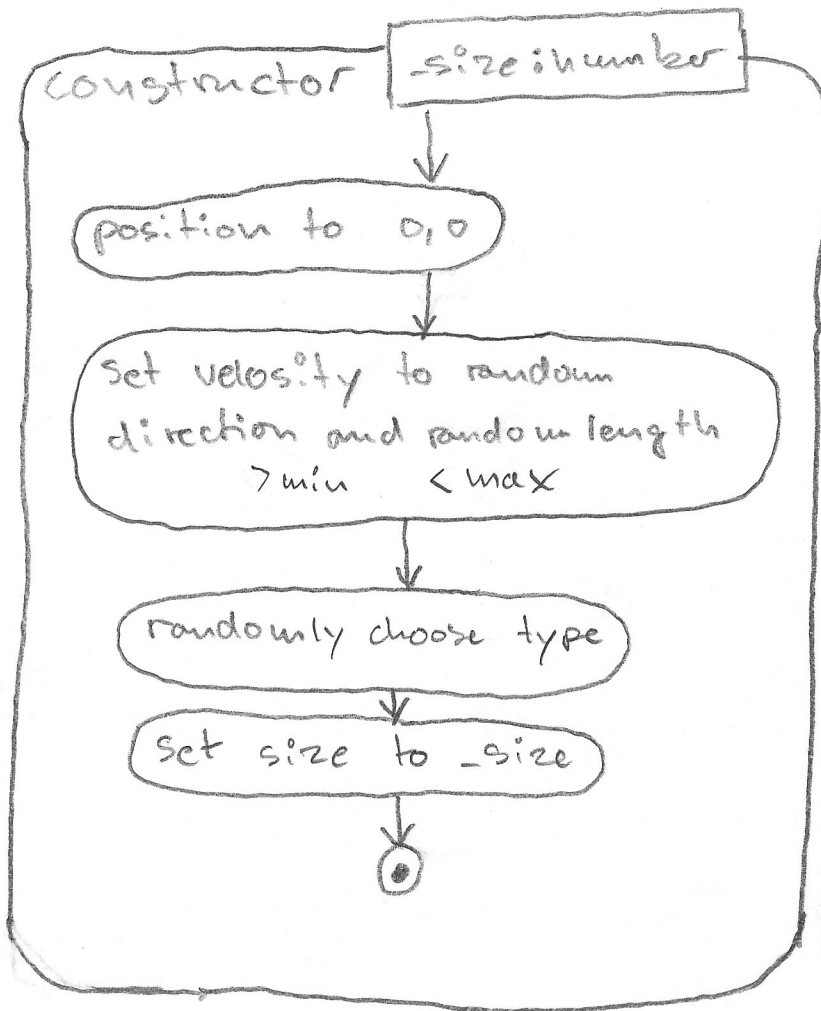 constructor
_size: number
position to 0,0
set velosity to random
direction and random length
>min <max
randomly choose type
set size to _size